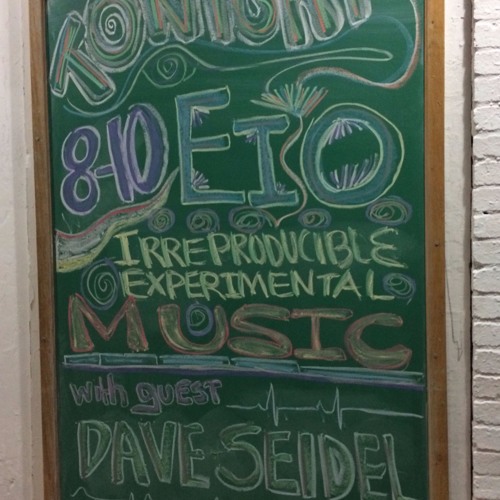 TONIGHT
8-10 EIO
IRREPRODUCIBLE
EXPERIMENTAL
MUSIC
with guest
DAVE SEIDEL